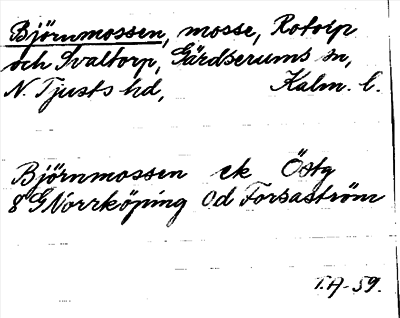 Björnmossen, mosse, Rotorp
och Svaltorp, Gärdserums sn,
N. Tjusts hd, Kalm. l.
Björnmossen ek Östg
8 G Norrköping 0d Forsaström
T.A-59.